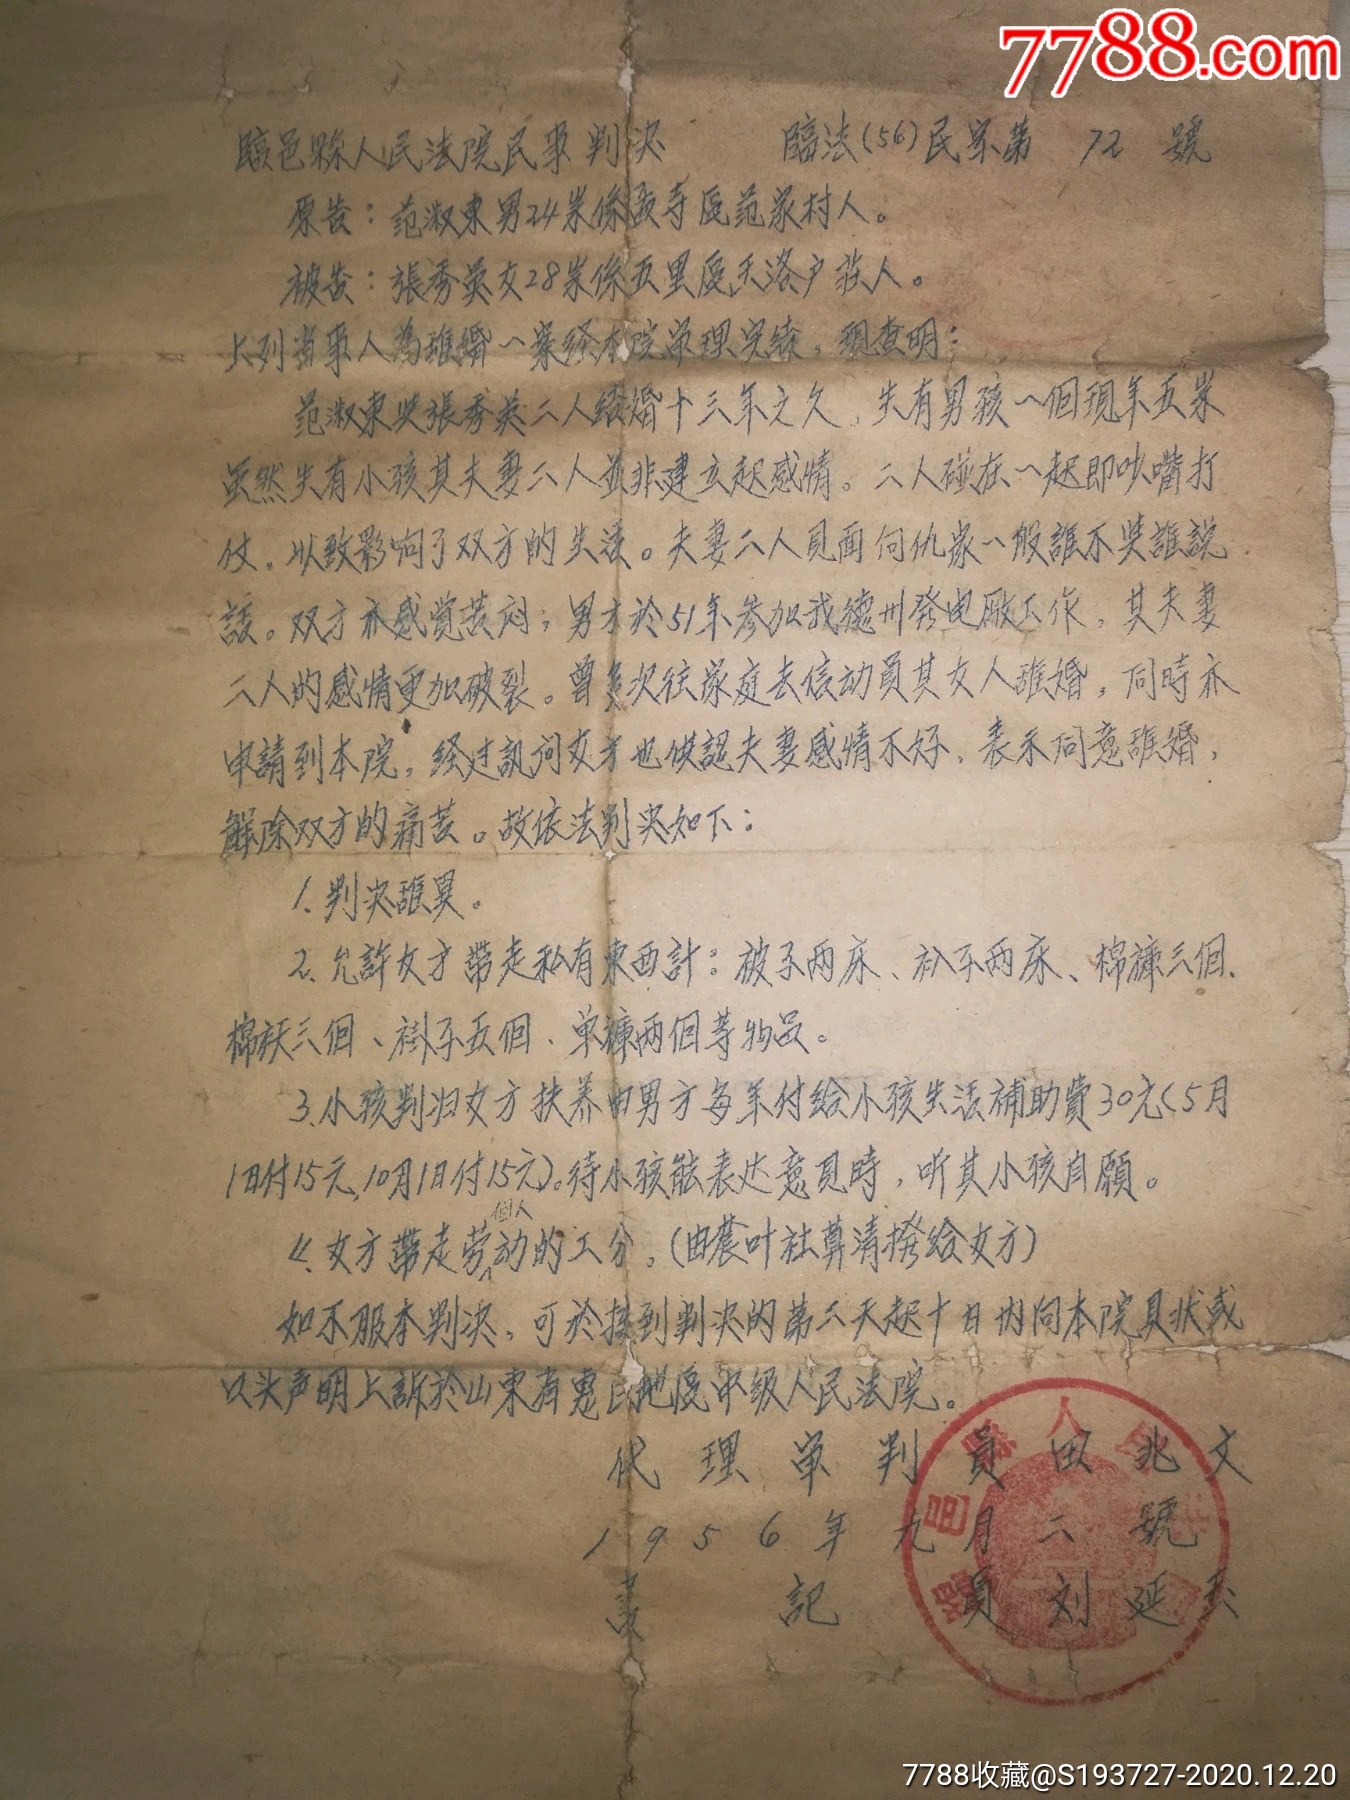 7788.com
臨邑縣人民法院民事判決 臨法(56)民字第 72 號
原告：范淑東男24岁係 寺區范家村人。
被告：張秀英女28岁係五里區天洛户莊人。
上列當事人為離婚一案经本院审理完结，現查明：
范淑東與張秀英二人结婚十三年之久，生有男孩一個現年五岁
虽然生有小孩其夫妻二人並非建立起感情。二人碰在一起即吵嘴打
仗，以致影响了双方的生活。夫妻二人見面何仇家一般誰不與誰説
話。双方亦感觉苦闷，男方於51年参加我德州發电厰工作，其夫妻
二人的感情更加破裂。曾多次往家庭去信动員其女人離婚，同時亦
申請到本院，经过訊问女方也供認夫妻感情不好，表示同意離婚，
解除双方的痛苦。故依法判决如下：
1、判决離異。
2、允許女方带走私有東西計：被子两床、 子两床、棉褲三個、
棉袄三個、褂子五個、单褲两個等物品。
3、小孩判归女方扶养由男方每年付给小孩生活補助費30元（5月
1日付15元，10月1日付15元）。待小孩能表达意見時，听其小孩自願。
4、女方带走劳個人动的工分。（由农叶社算清撥给女方）
如不服本判决，可於接到判决的第二天起十日内向本院具状或
口头声明上訴於山東省惠民地區中级人民法院。
代理审判員田兆文
1956年九月二號
記員刘延
臨邑縣人民
7788收藏@S193727-2020.12.20